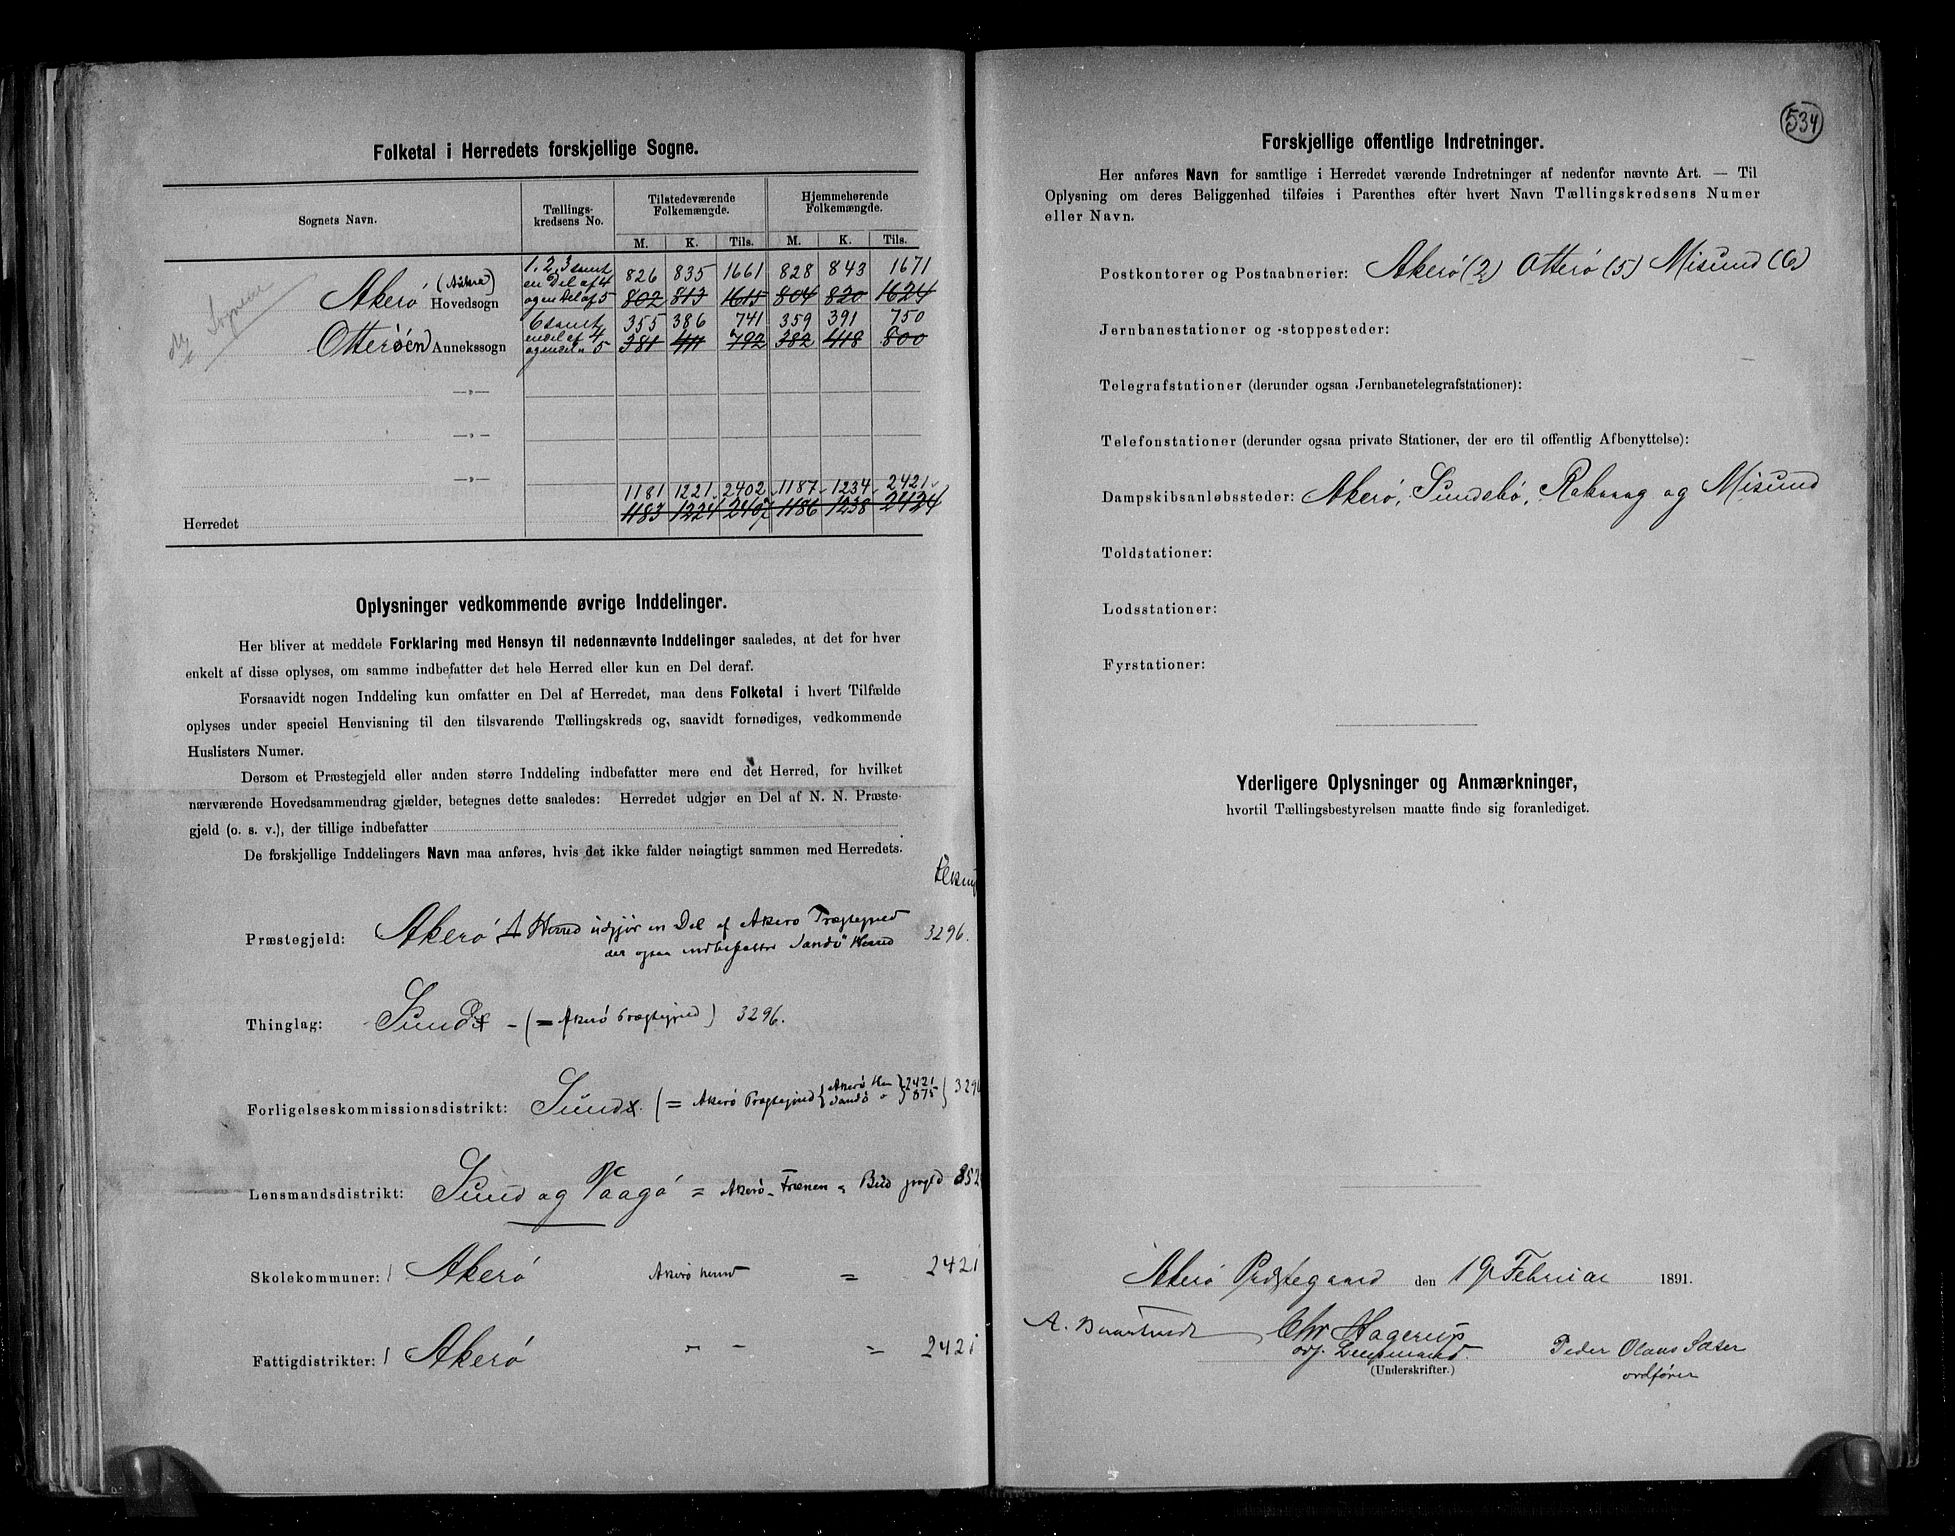 Folketal i Herredets forskjellige Sogne.
Sognets Navn. Tællings-kredsens No. Tilstedeværende Folkemængde. Hjemmehørende Folkemængde.
M. K. Tils. M. K. Tils.
Akerø (Aukra) Hovedsogn 1, 2, 3 samt en Del af 4 og en Del af 5 826 835 1661 828 843 1671
802 813 1615 804 820 1624
Otterø(en) Annekssogn 6 samt endel af 4 og endel " 5 355 386 741 359 391 750
381 411 792 382 418 800
— „ —
— „ —
— „ —
1181 1221 2402 1187 1234 2421
Herredet 1183 1224 2407 1186 1238 2424
Oplysninger vedkommende øvrige Inddelinger.
Her bliver at meddele Forklaring med Hensyn til nedennævnte Inddelinger saaledes, at det for hver
enkelt af disse oplyses, om samme indbefatter det hele Herred eller kun en Del deraf.
Forsaavidt nogen Inddeling kun omfatter en Del af Herredet, maa dens Folketal i hvert Tilfælde
oplyses under speciel Henvisning til den tilsvarende Tællingskreds og, saavidt fornødiges, vedkommende
Huslisters Numer.
Dersom et Præstegjeld eller anden større Inddeling indbefatter mere end det Herred, for hvilket
nærværende Hovedsammendrag gjælder, betegnes dette saaledes: Herredet udgjør en Del af N. N. Præste-
gjeld (o. s. v.), der tillige indbefatter
De forskjellige Inddelingers Navn maa anføres, hvis det ikke falder nøiagtigt sammen med Herredets.
Præstegjeld: Akerø A Herred udgjør en Del af Akerø Præstegjeld
der ogsaa indbefatter Sandø Herred 3296.
Thinglag: Sund - (= Akerø Præstegjeld) 3296.
Forligelseskommissionsdistrikt: Sund (= Akerø Præstegjeld { Akerø He 2421 Sandø " 875 } 3296
Lensmandsdistrikt: Sund og Vaagø = Akerø - Frænen " Bud prgld 852
Skolekommuner: 1 Akerø Akerø herred = 2421
Fattigdistrikter: 1 Akerø " - = 2421
534
Forskjellige offentlige Indretninger.
Her anføres Navn for samtlige i Herredet værende Indretninger af nedenfor nævnte Art. — Til
Oplysning om deres Beliggenhed tilføies i Parenthes efter hvert Navn Tællingskredsens Numer
eller Navn.
Postkontorer og Postaabnerier: Akerø (2) Otterø (5) Misund (6)
Jernbanestationer og -stoppesteder:
Telegrafstationer (derunder ogsaa Jernbanetelegrafstationer):
Telefonstationer (derunder ogsaa private Stationer, der ere til offentlig Afbenyttelse):
Dampskibsanløbssteder: Akerø, Sundsbø, Rakvaag og Misund
Toldstationer:
Lodsstationer:
Fyrstationer:
Yderligere Oplysninger og Anmærkninger,
hvortil Tællingsbestyrelsen maatte finde sig foranlediget.
Akerø Præstegaard den 19 Februar 1891.
A. Chr Hagerup Peder Olaus Sæter
ordfører
(Underskrifter.)